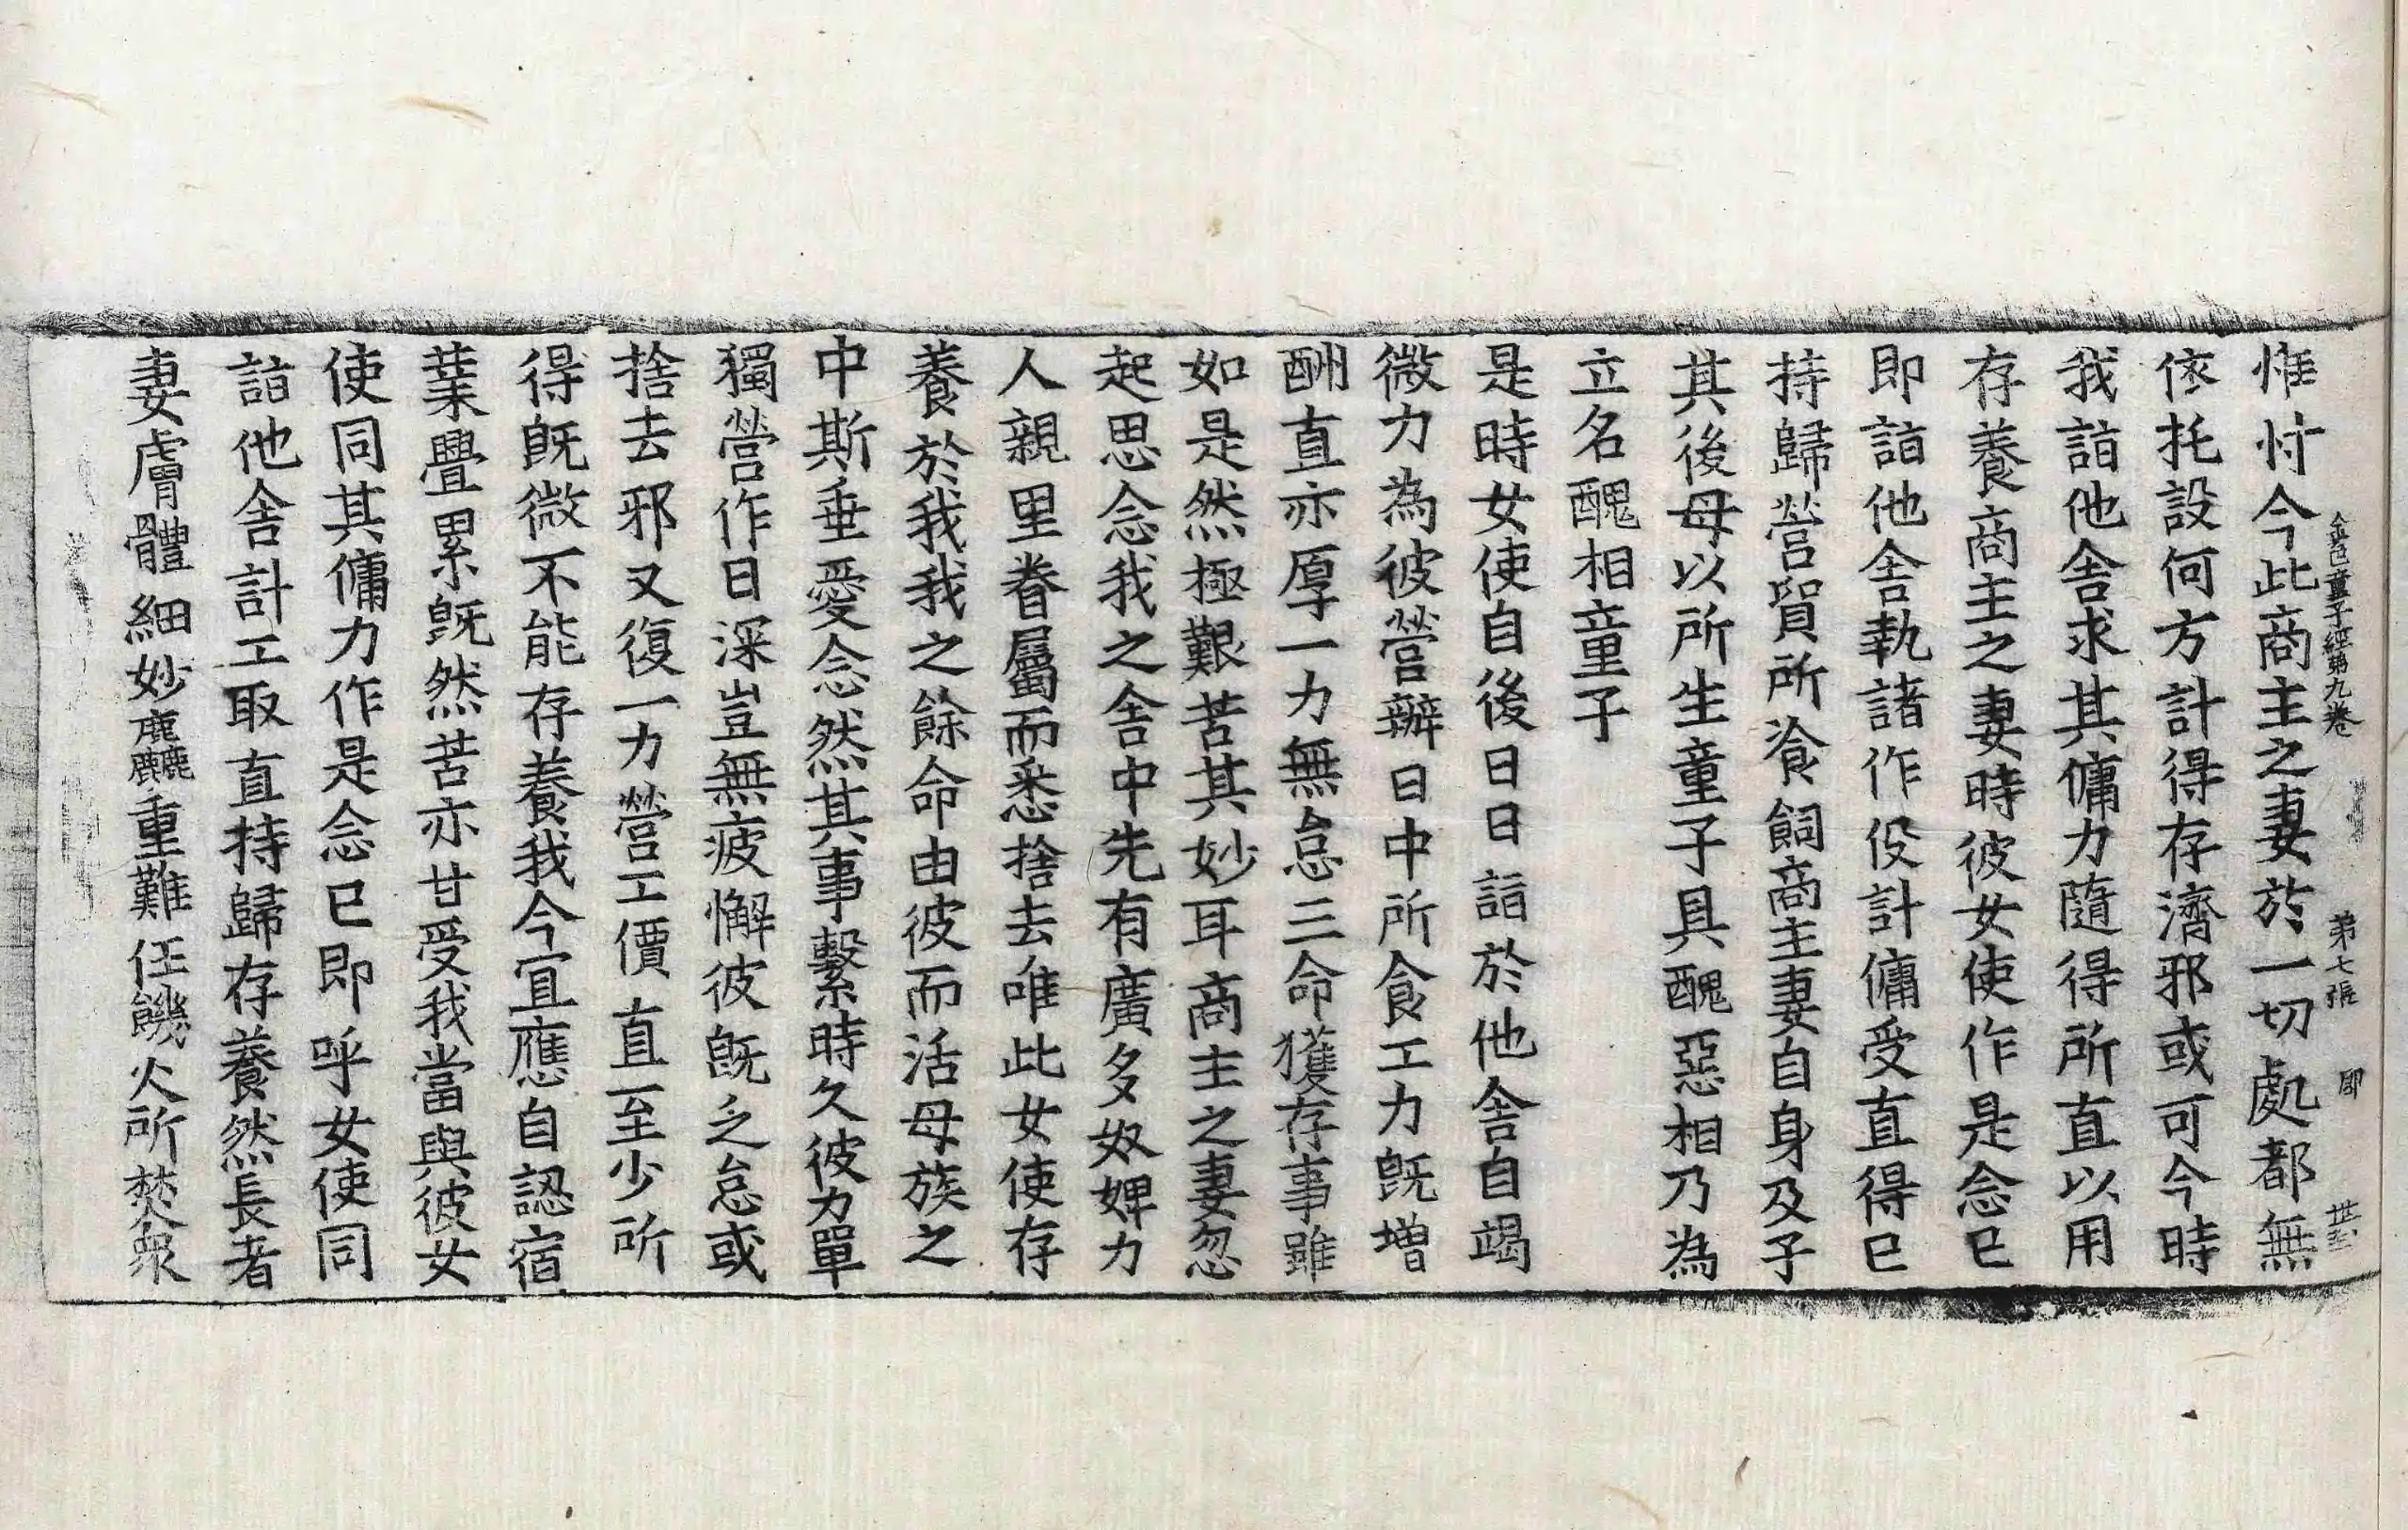 金色童子經第九卷 第七張 

惟忖今此商主之妻於一切處都無
依托設何方計得存濟邪或可今時
我詣他舍求其傭力隨得所直以用
存養商主之妻時彼女使作是念已
即詣他舍執諸作役計傭受直得已
持歸營貿所飡飼商主妻自身及子
其後母以所生童子具醜惡相乃為
立名醜相童子
是時女使自後日日詣於他舍自竭
微力為彼營辦日中所食工力既增
酬直亦厚一力無怠三命獲存事雖
如是然極艱苦其妙耳商主之妻忽
起思念我之舍中先有廣多奴婢力
人親里眷屬而悉捨去唯此女使存
養於我我之餘命由彼而活母族之
中斯垂愛念然其事繫時久彼力單
獨營作日深豈無疲懈彼既乏怠或
捨去邪又復一力營工價直至少所
得既微不能存養我今宜應自認宿
業疊累既然苦亦甘受我當與彼女
使同其傭力作是念已即呼女使同
詣他舍計工取直持歸存養然長者
妻膚體細妙麤重難任饑火所焚衆